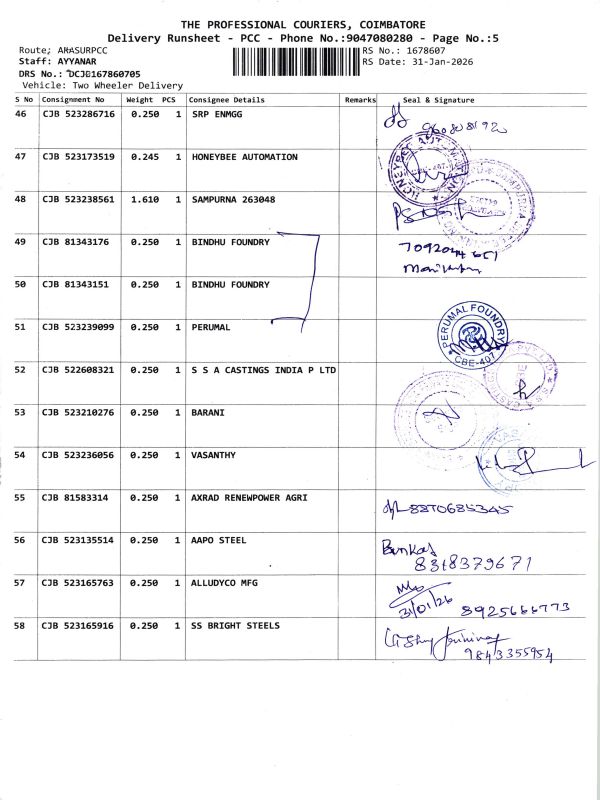 THE PROFESSIONAL COURIERS, COIMBATORE
Delivery Runsheet - PCC - Phone No.:9047080280 - Page No.:5
Route; ARASURPCC RS No.: 1678607
Staff: AYYANAR RS Date: 31-Jan-2026
DRS No.: DCJB167860705
Vehicle: Two Wheeler Delivery
S No Consignment No Weight PCS Consignee Details Remarks Seal & Signature
46 CJB 523286716 0.250 1 SRP ENMGG
47 CJB 523173519 0.245 1 HONEYBEE AUTOMATION
48 CJB 523238561 1.610 1 SAMPURNA 263048
49 CJB 81343176 0.250 1 BINDHU FOUNDRY
50 CJB 81343151 0.250 1 BINDHU FOUNDRY
51 CJB 523239099 0.250 1 PERUMAL PERUMAL FOUNDRY CBE-407
52 CJB 522608321 0.250 1 S S A CASTINGS INDIA P LTD
53 CJB 523210276 0.250 1 BARANI
54 CJB 523236056 0.250 1 VASANTHY
55 CJB 81583314 0.250 1 AXRAD RENEWPOWER AGRI
56 CJB 523135514 0.250 1 AAPO STEEL
8318379671
57 CJB 523165763 0.250 1 ALLUDYCO MFG
31/01/26 8925666773
58 CJB 523165916 0.250 1 SS BRIGHT STEELS
9843355954